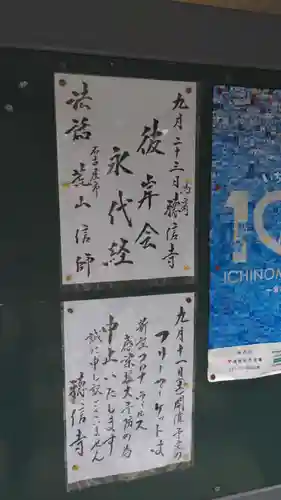 九月二十三日 聴信寺
彼岸会
永代経
法話
名古屋市
荒山 信 師
九月十一日(土)開催予定の
フリーマーケットは
新型コロナウィルス
感染拡大予防の為
中止いたします
誠に申し訳ございません
聴信寺
10